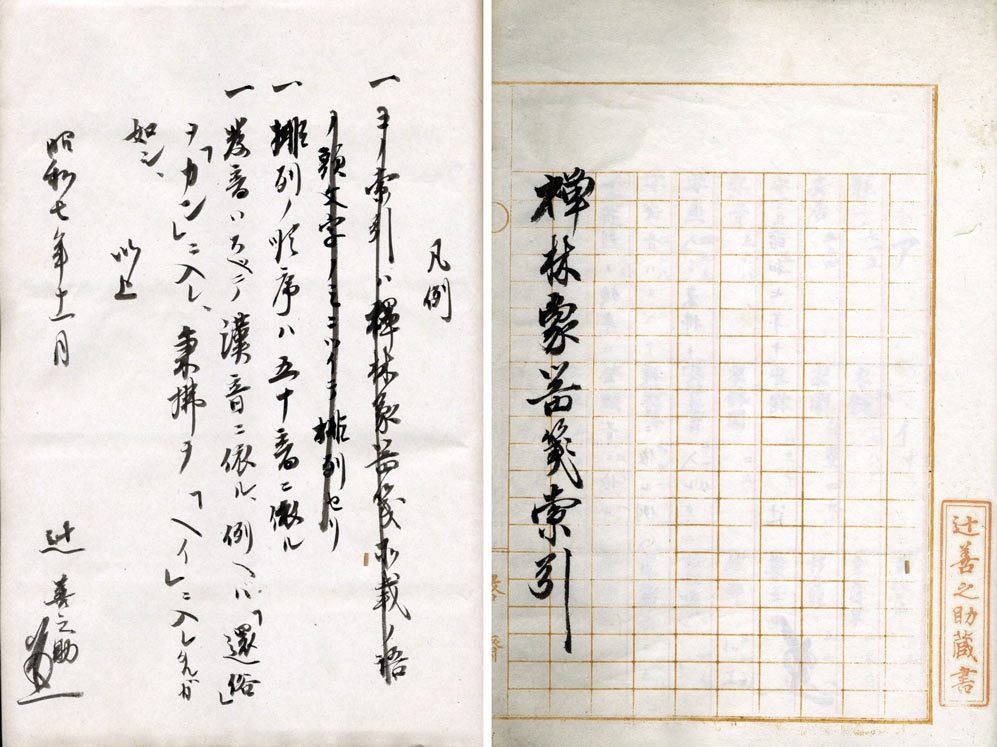 禅林象器箋索引
辻善之助蔵書
凡例
一 コノ索引ハ禅林象器箋所載ノ語
ノ頭文字ノミニツイテ排列セリ
一 排列ノ順序ハ五十音ニ倣ル
一 発音ハスベテ漢音ニ依ル、例ヘバ「還俗」
ヲ「カン」ニ入レ、秉拂ヲ「ヘイ」ニ入レタルガ
如シ、
以上
昭和七年十一月
辻善之助